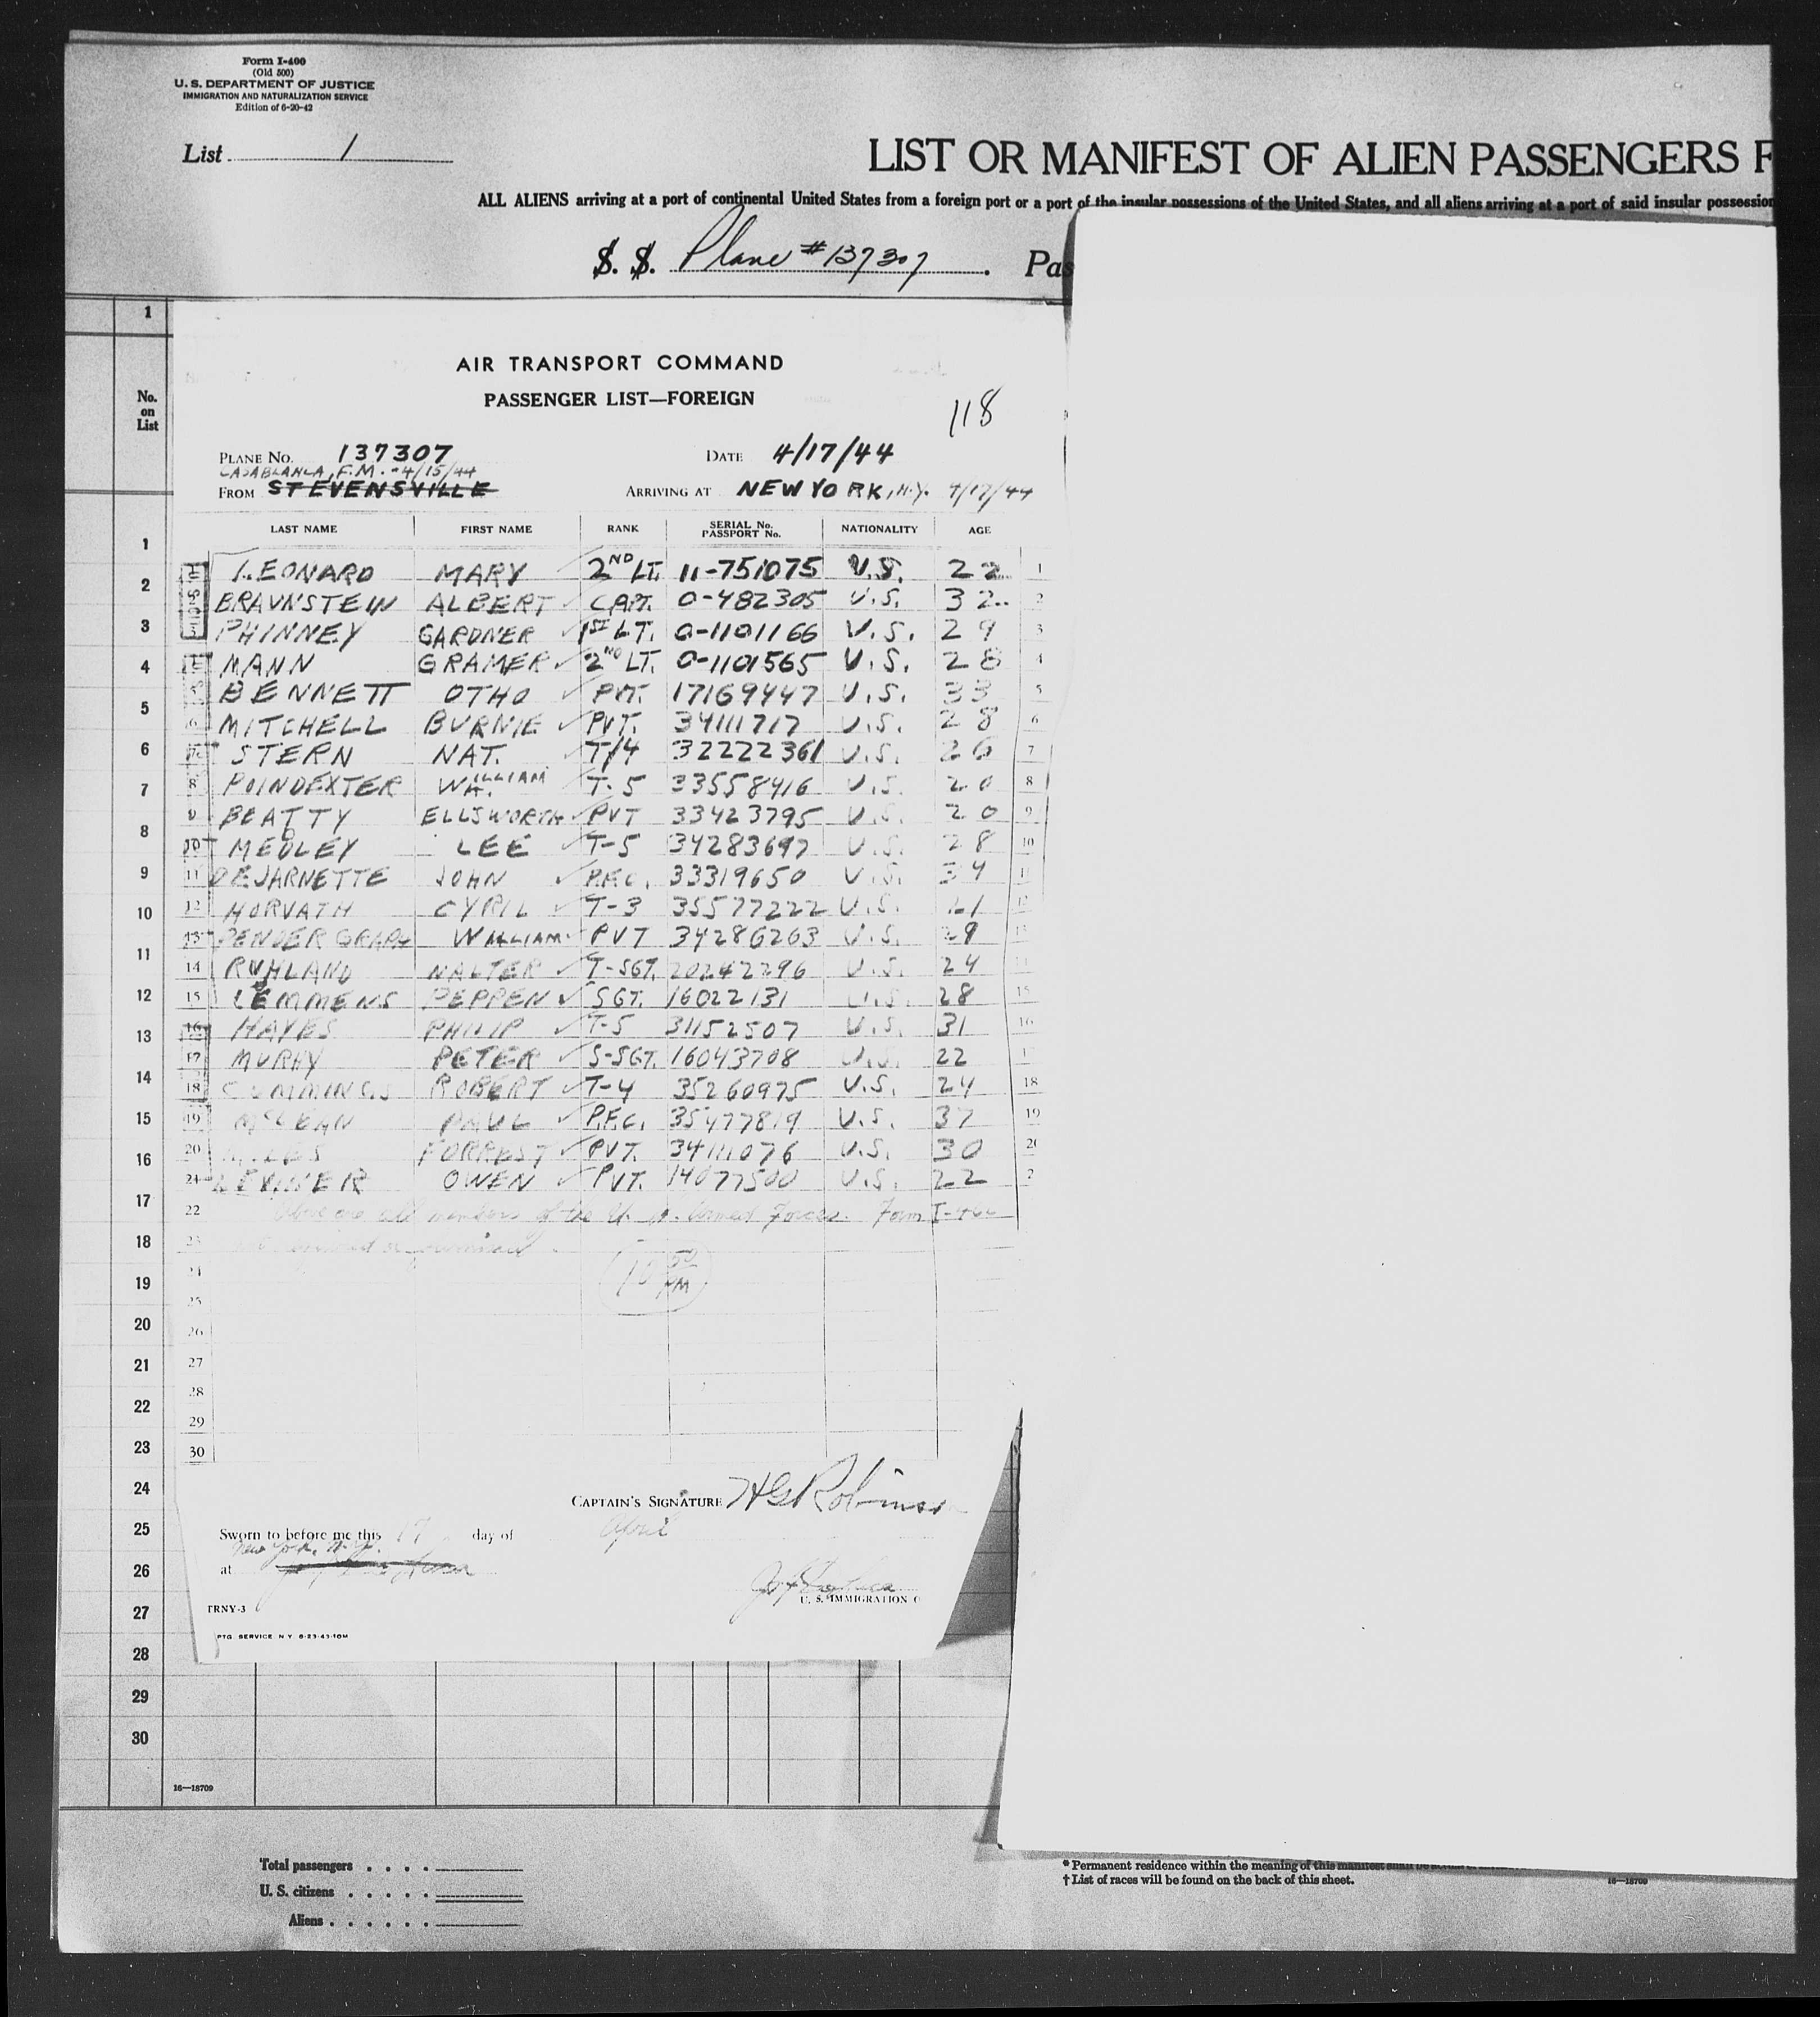 Form I-400
(Old 500)
U. S. DEPARTMENT OF JUSTICE
IMMIGRATION AND NATURALIZATION SERVICE
Edition of 6-20-42
List 1
LIST OR MANIFEST OF ALIEN PASSENGERS F
ALL ALIENS arriving at a port of continental United States from a foreign port or a port of the insular possessions of the United States, and all aliens arriving at a port of said insular possession
S. S. Plane #137307. Pas
1
No. on List
AIR TRANSPORT COMMAND
PASSENGER LIST—FOREIGN
118
PLANE No. 137307 DATE 4/17/44
CASABLANCA, F.M. - 4/15/44
FROM STEVENSVILLE ARRIVING AT NEW YORK, N.Y. 4/17/44
LAST NAME FIRST NAME RANK SERIAL No. PASSPORT No. NATIONALITY AGE
LEONARD MARY 2ND LT. 11-751075 U.S. 22 1
BRAUNSTEIN ALBERT CAPT. 0-482305 U.S. 32 2
PHINNEY GARDNER 1ST LT. 0-1101166 U.S. 29 3
MANN GRAMER 2ND LT. 0-1101565 U.S. 28 4
BENNETT OTHO PVT. 17169447 U.S. 33 5
6 MITCHELL BURNIE PVT. 34111717 U.S. 28 6
7 STERN NAT. T/4 32222361 U.S. 26 7
8 POINDEXTER WILLIAM T-5 33558416 U.S. 20 8
9 BEATTY ELLSWORTH PVT 33423795 U.S. 20 9
10 MEDLEY LEE T-5 34283697 U.S. 28 10
11 DEJARNETTE JOHN P.F.C. 33319650 U.S. 34 11
12 HORVATH CYRIL T-3 35577222 U.S. 21 12
13 PENDERGRAPH WILLIAM PVT 34286263 U.S. 29 13
14 RUHLAND WALTER T-SGT. 20242296 U.S. 24
15 LEMMENS PEPPEN SGT. 16022131 U.S. 28 15
16 HAYES PHILIP T-5 31152507 U.S. 31 16
17 MURHY PETER S-SGT. 16043708 U.S. 22
18 CUMMINGS ROBERT T-4 35260975 U.S. 24 18
19 MCLEAN PAUL P.F.C. 35477819 U.S. 37 19
20 FORREST PVT. 34111076 U.S. 30 20
21 OWEN PVT. 14077500 U.S. 22 2
22 Above are all members of the U. S. Armed Forces. Form I-466
23 not required or furnished.
24
25
26
27
28
29
30
1
2
3
4
5
6
7
8
9
10
11
12
13
14
15
16
17
18
19
20
21
22
23
24
25
26
27
28
29
30
50 PM
CAPTAIN'S SIGNATURE H G Robinson
Sworn to before me this 17 day of April
New York, N.Y.
at
U. S. IMMIGRATION O
TRNY-3
PTG. SERVICE N Y 6-23-43-10M
16—18709
Total passengers
U. S. citizens
Aliens
* Permanent residence within the meaning of this manifest
† List of races will be found on the back of this sheet.
16—18709